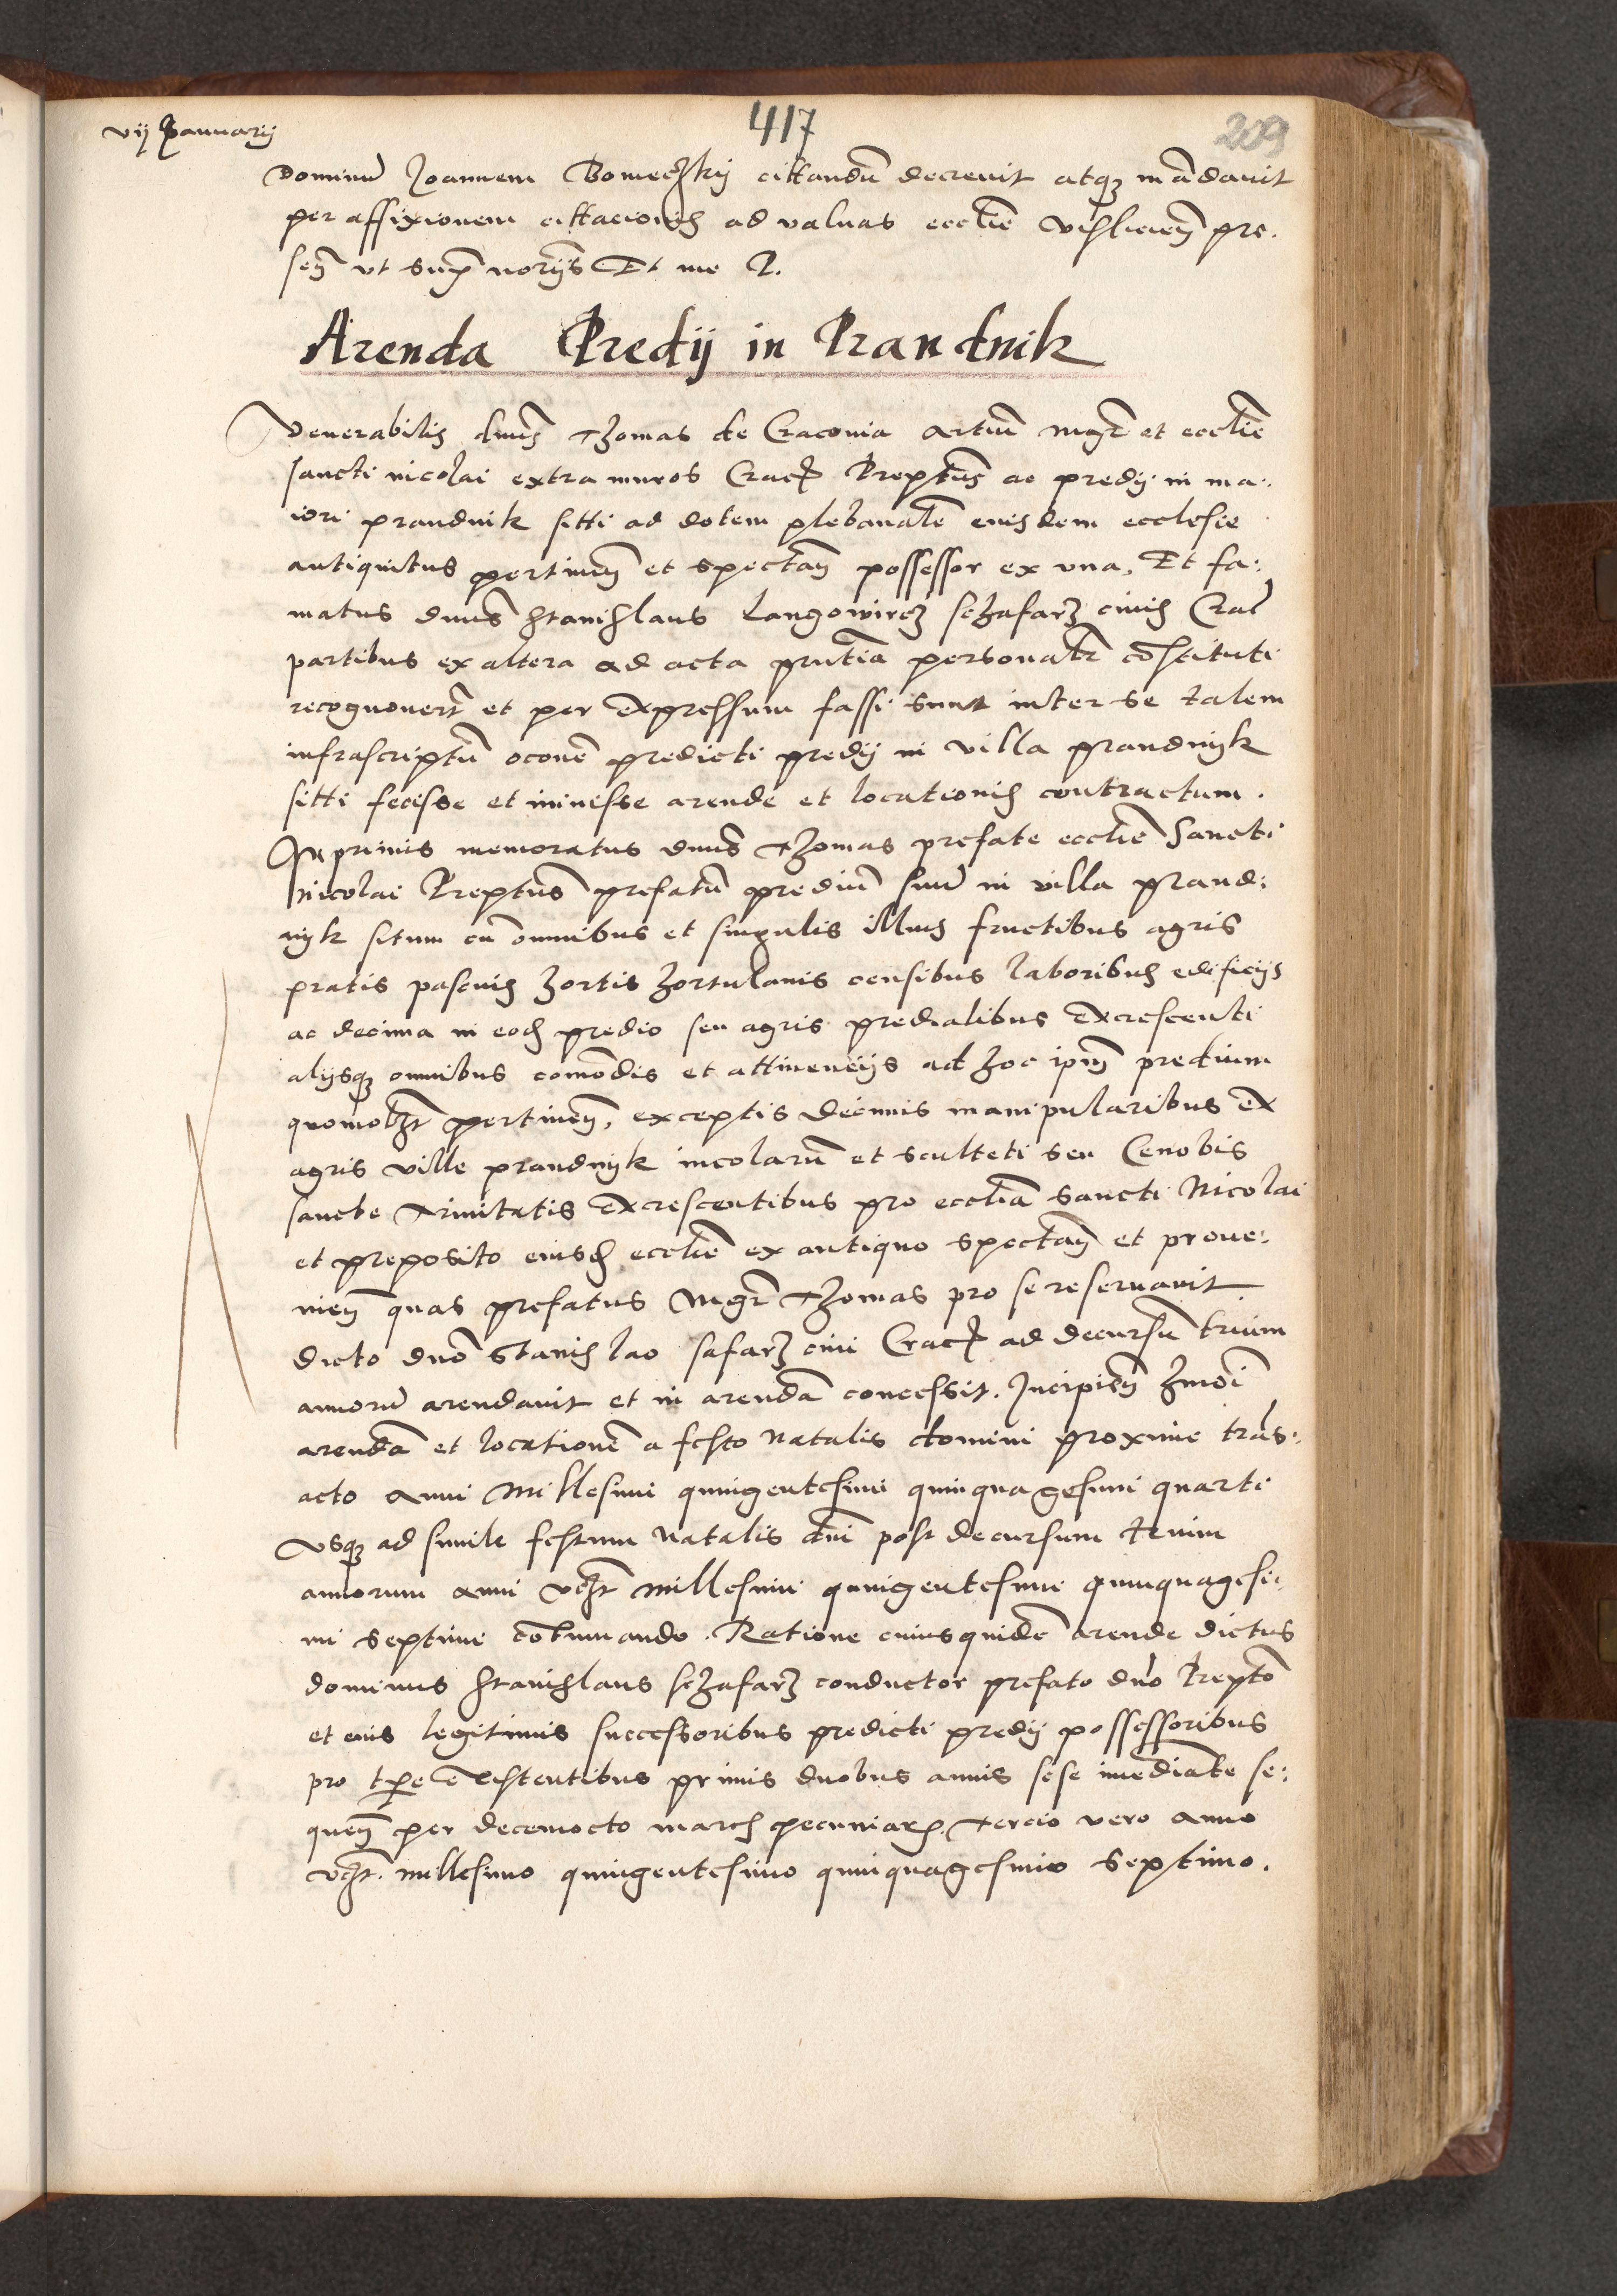 417
209
vij Januarij
Dominū Joannem Bomeczkij cittandū decrevit atqȝ mādavit
per affixionem cittacionis ad valvas ecclīe Vislicieñ pre.
señ ut sup̄ norijs Et me N.
Arenda Predij in Prandnik
Venerabilis dnūs Thomas de Craconia Artiū mgr̄ et ecclīe
sancti nicolai extra muros Crac̄ Preptūs ac predij in ma:
iori prandnik sitti ad dotem plebanalē eiusdem ecclesie
antiquitus pertineñ et spectañ possessor ex una, Et fa:
matus dnūs Stanislaus Langowicz schafarz civis Crac̄
partibus ex altera ad acta pr̄ntia personalr̄ cōstituti
recognovert̄ et per expressum fassi sunt inter se talem
infrascriptū ōconē predicti predij in villa prandnyk
sitti fecisse et inivisse arende et locationis contractum.
Inprimis memoratus dnūs Thomas prefate ecclīe Sancti
Nicolai Preptūs prefatū prediū suū in villa prand:
nyk situm cū omnibus et singulis illius fructibus agris
pratis pascuis hortis hortulanis censibus laboribus edificijs
ac decima in eod̄ predio seu agris predialibus excrescenti
alijsqȝ omnibus comōdis et attinencijs ad hoc ipm̄ predium
quomolȝt pertineñ, exceptis decimis manipularibus ex
agris ville prandnyk incolarū et sculteti seu Cenobis
sancte trinitatis excrescentibus pro ecclīa sancti Nicolai
et preposito eiusd̄ ecclīe ex antiquo spectañ et prove:
nieñ quas prefatus Mgr̄ Thomas pro se reservavit
dicto dnō Stanislao safarz civi Crac̄ ad decursū trium
annorū arendavit et in arendā concessit. Incipieñ hmōi
arendā et locationē a festo Natalis domini proxime trās:
acto Anni Millesimi quingentesimi quinquagesimi quarti
Usqȝ ad simile festum Natalis dnī post decursum trium
annorum anni vȝt millesimi quingentesimi quinquagesi:
mi septimi cōtinuando. Ratione cuius quidē arende dictus
dominus Stanislaus schafarz conductor prefato dnō Preptō
et eius legitimis successoribus predicti predij possessoribus
pro tp̄e existentibus primis duobus annis sese imediate se:
queñ per decemocto march pecuniar̄, tercio vero anno
vȝt. millesimo quingentesimo quinquagesimo septimo.